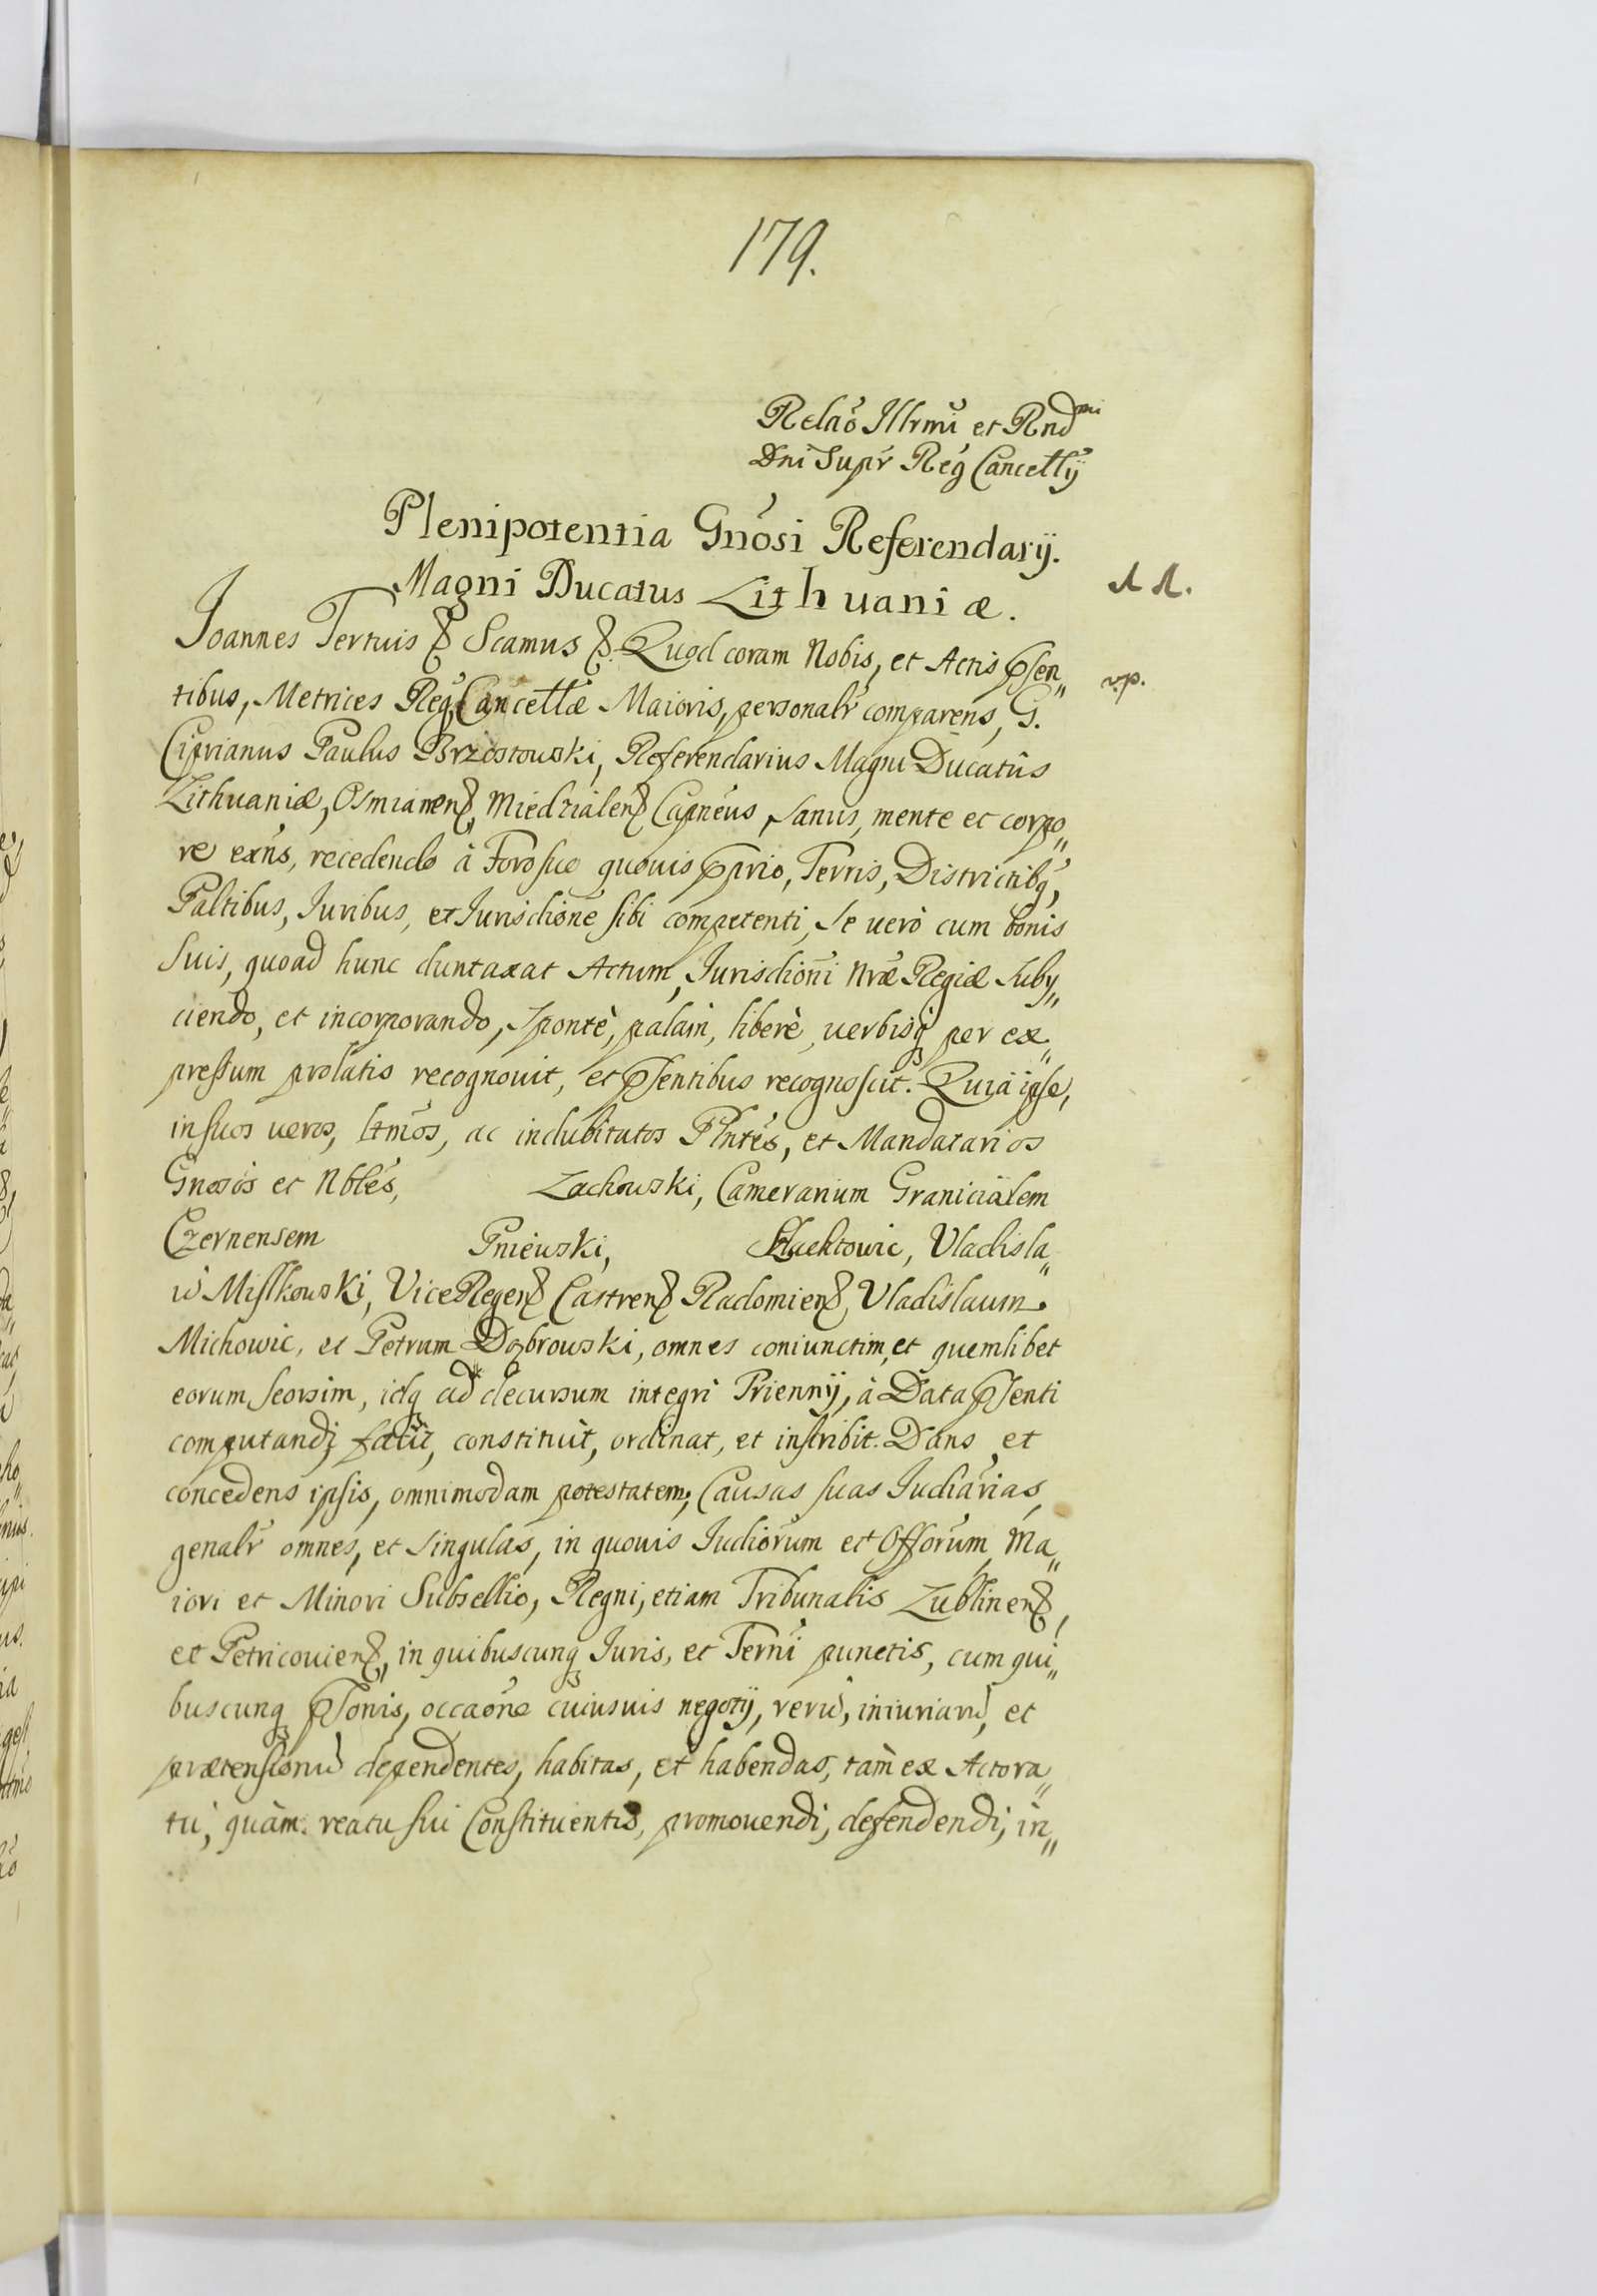 179.
Relaõ Illrmi et Rndmi
Dni Supr Reg Cancellÿ
Plenipotentia Gnosi Referendarÿ.
Magni Ducatus Lithuaniæ.
Joannes Tertuis & Scamus & Quod coram Nobis, et Actis psen„
tibus, Metrices Reg Cancellæ Maioris, personalr comparens, G.
Ciprianus Paulus Brzostowski, Referendarius Magni Ducatûs
Lithuaniæ, Osmianen, Miedzialen Capneus, sanus, mente et corpo„
re exns, recedendo à Foro suo quovis pprio, Terris, Districtibq,
Paltibus, Juribus, et Jurisdione sibi competenti, se verò cum bonis
suis, quoad hunc duntaxat Actum, Jurisdioni nræ Regiæ suby„
ciendo, et incorporando, spontè, palam, liberè, uerbisq per ex„
pressum prolatis recognouit, et psentibus recognoscit. Quia ipse,
in suos ueros, ltmos, ac indubitatos Plntes, et Mandatarios
Gnosos et Nbles, Zachowski, Camerarium Granicialem
Czernensem Pniewski, Vladisla„
ũ Misłkowski, ViceRegen Castren Radomien, Vladislaum
Michowic, et Petrum Dobrowski, omnes coniunctim, et quemlibet
eorum seorsim, idq ad decursum integri Triennÿ, à Data psenti
computandi, facit, constituit, ordinat, et inscribit. Dans et
concedens ipsis, omnimodam potestatem; Causas suas Judiarias,
genalr omnes, et singulas, in quouis Judiorum et Offorum, Ma„
iori et Minori Subsellio, Regni, etiam Tribunalis Lublinen,
et Petricouien, in quibuscunq Juris, et Terni punctis, cum qui„
buscunq psonis, occaone cuiusuis negotÿ, rerũ, iniuriarũ, et
prætensionũ dependentes, habitas, et habendas, tam ex Actora„
tu, quàm reatu sui Constituentis, promouendi, defendendi, in„